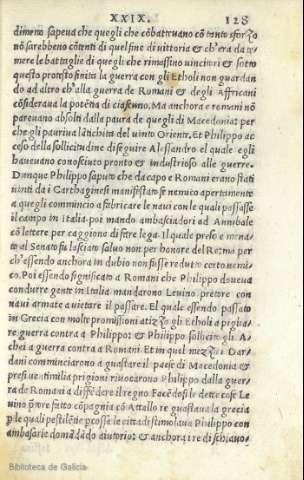 XXIX. 128
dimeno sapeua che quegli che cõbatteuano cõ tanto sforzo
nõ sarebbeno cõtenti di quel fine di uittoria & ch'era da
mere le battaglie di quegli che rimassino uincitori & sotto
questo protesto finita la guerra con gli Etholi non guardan
do ad altro ch'alla guerra de Romani & degli Affricani
cõsideraua la potẽtia di ciascuno. Ma anchora e romani nõ
pareuano absolti dalla paura de quegli di Macedonia: per
che gli pauriua l'ãtichita del uinto Oriente. Et Philippo ac
ceso della sollicitudine di seguire Alessandro el quale egli
haueuano conosciuto pronto & industrioso alle guerre.
Dunque Philippo saputo che da capo e Romani erano stati
uinti da i Carthaginesi manifestatose nemico apertamente
a quegli comincio a fabricare le naui con le quali passasse
il campo in Italia. poi mando ambasciadori ad Annibale
cõ lettere per caggiona di fare lega. Il quale preso e mena
to al Senato fu lasciato saluo non per honore del Re: ma per
ch'essendo anchora in dubio non fusse reduto certo nemi
co. Poi essendo significato a Romani che Philippo doueua
condurre gente in Italia mandarono Leuino pretore con
naui armate a uietare il passare. El quale essendo passato
in Grecia con molte promissioni atizzo gli Etholi a piglia
re guerra contra a Philippo: & Philippo sollicito gli A-
chei a guerra contra a Romani. Et in quel mezzo e Dar
dani comminciarono a guastare il paese di Macedonia &
presi uẽtimilia prigioni riuocarono Philippo dalla guer
ra de Romani a diffẽdere il regno. Facẽdosi le dette cose Le
uino p̃tore fatto cõpagnia cõ Attallo re guastaua la grecia
p̃ le quali pestilẽtie p̃cosse le citta stimolaua Philippo con
ambasarie domãdãdo aiutorio: & anchora i re di schiauo-
Biblioteca de Galicia